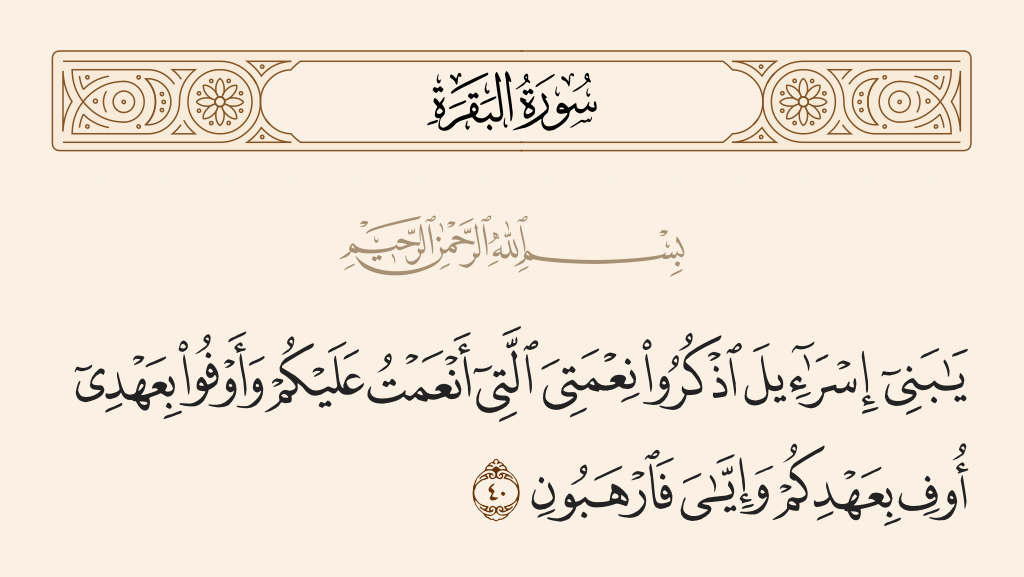 سُورَةُ البَقَرَةِ
بِسْمِ ٱللَّهِ ٱلرَّحْمَٰنِ ٱلرَّحِيمِ
يَٰبَنِىٓ إِسْرَٰٓءِيلَ ٱذْكُرُوا۟ نِعْمَتِىَ ٱلَّتِىٓ أَنْعَمْتُ عَلَيْكُمْ وَأَوْفُوا۟ بِعَهْدِىٓ
أُوفِ بِعَهْدِكُمْ وَإِيَّٰىَ فَٱرْهَبُونِ ٤٠